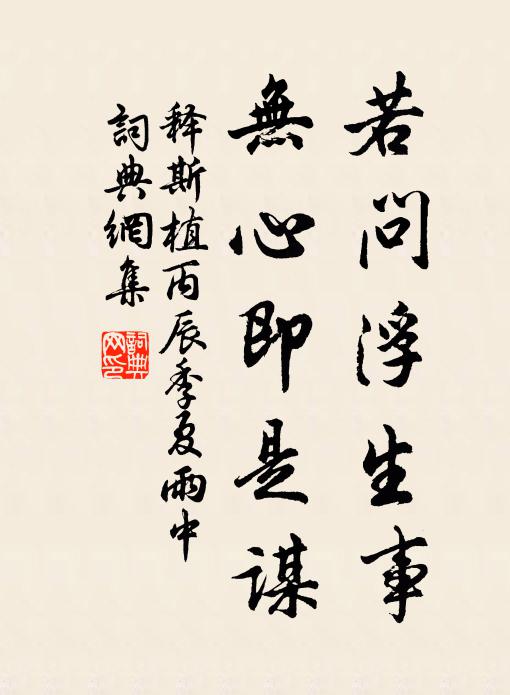 若问浮生事
無心即是謀
释斯植丙辰季夏雨中
詞典網集
詞典网印